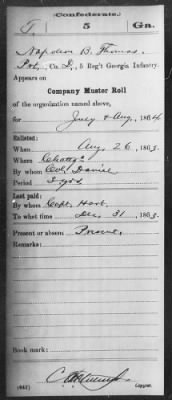 Confederate.
T. 5 Ga.
Napoleon B. Thomas.
Pvt., Co. D, 5 Reg't Georgia Infantry.
Appears on
Company Muster Roll
of the organization named above,
for July & Aug, 1864
Enlisted:
When Aug 26, 1863.
Where
By whom Col. Daniel
Period 3 yrs
Last paid:
By whom Capt. Hart.
To what time Dec. 31, 1863.
Present or absent Present.
Remarks:
Book mark:
(642) Copyist.